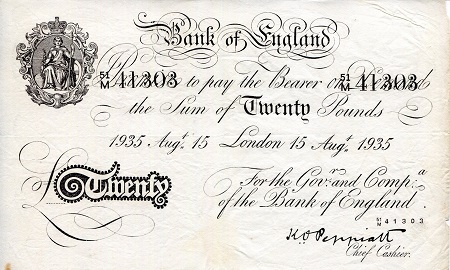 Bank of England
51/M 41303 Promise to pay the Bearer on Demand 51/M 41303
the Sum of Twenty Pounds
1935 Augt. 15 London 15 Augt. 1935
For the Govr. and Compa.
£ Twenty of the Bank of England.
51/M 41303
K.O. Peppiatt
Chief Cashier.